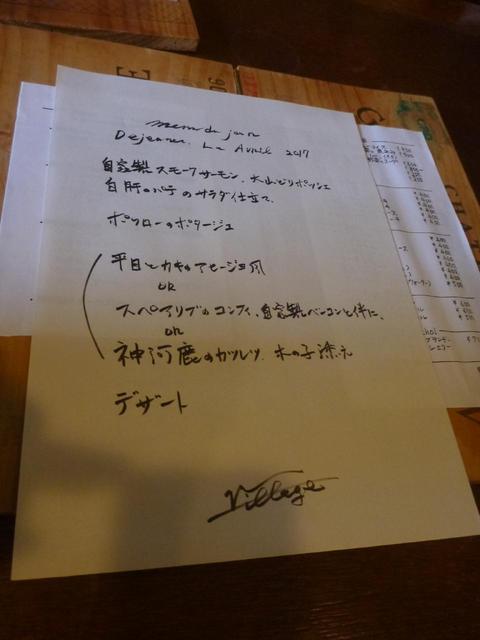 menu du jour
Dejeuner. Le Avril 2017
自家製スモークサーモン、大山どりポッシェ
白肝のパテのサラダ仕立て、
ポワローのポタージュ
平目とカキのアヒージョ風
or
スペアリブのコンフィ、自家製ベーコンと伴に、
or
神河鹿のカツレツ、木の子添え
デザート
Village